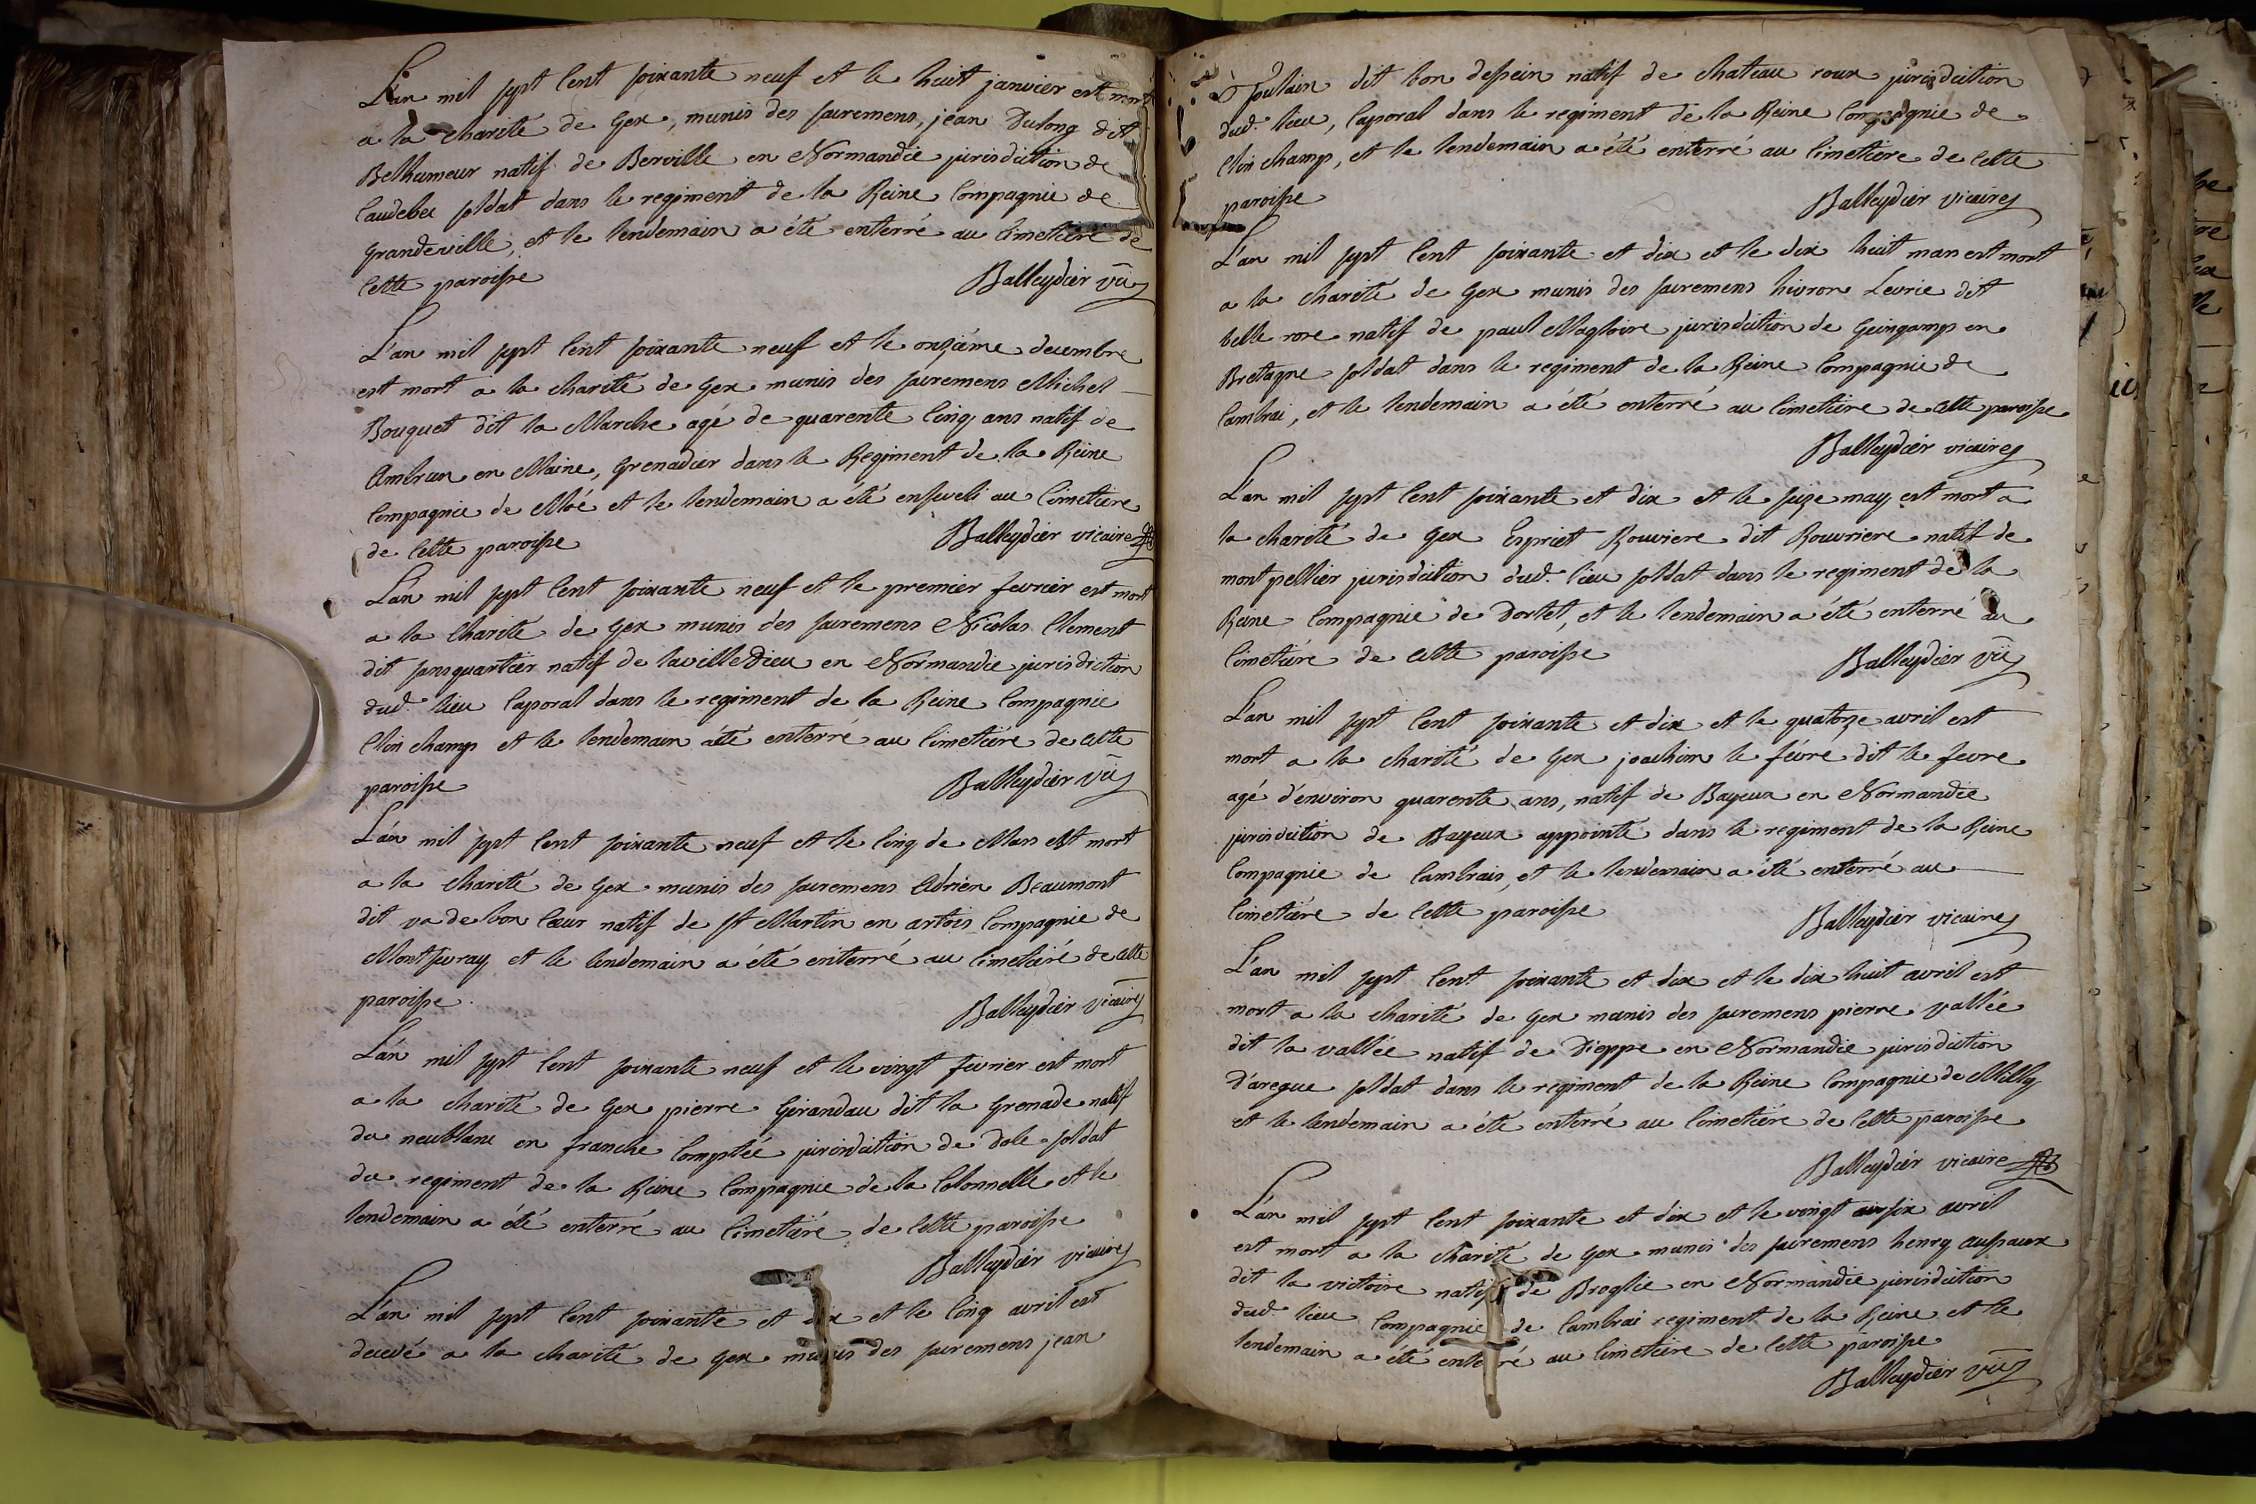 L'an mil sept cent soixante neuf et le huit janvier est mort
a la charité de Gex, munis des sacremens, jean Dulong dit
Belhumeur natif de Berville en Normandie jurisdiction de
Caudebec soldat dans le regiment de la Reine Compagnie de
Grandeville, et le lendemain a été enterré au cimetiere de
cette paroisse Balleydier vic
L'an mil sept cent soixante neuf et le onziéme decembre
est mort a la charité de Gex munis des sacremens Michel
Bouquet dit la Marche agé de quarente cinq ans natif de
Ambran en Maine, Grenadier dans le Regiment de la Reine
Compagnie de Moé et le lendemain a été enseveli au cimetiere
de cette paroisse Balleydier vicaire
L'an mil sept cent soixante neuf et le premier fevrier est mort
a la charité de Gex munis des sacremens Nicolas Clement
dit sansquartier natif de la ville Dieu en Normandie jurisdiction
dud. lieu Caporal dans le regiment de la Reine Compagnie
Clin champ et le lendemain a été enterré au cimetiere de cette
paroisse Balleydier vic
L'an mil sept cent soixante neuf et le cinq de Mars est mort
a la charité de Gex munis des sacremens Adrien Beaumont
dit va de bon cœur natif de st Martin en artois Compagnie de
Montsuray et le lendemain a été enterré au cimetiere de cette
paroisse. Balleydier vicaire
L'an mil sept cent soixante neuf et le vingt fevrier est mort
a la charité de Gex pierre Girandau dit la Grenade natif
du neublanc en franche Comptée jurisdiction de Dole soldat
du regiment de la Reine Compagnie de la Colonnelle et le
lendemain a été enterré au cimetiere de cette paroisse
Balleydier vicaire
L'an mil sept cent soixante et dix et le cinq avril est
decedé a la charité de Gex munis des sacremens jean
Foulain dit bon dessein natif de chateau roux jurisdiction
dud. lieu, Caporal dans le regiment de la Reine Compagnie de
Clin champ, et le lendemain a été enterré au cimetiere de cette
paroisse Balleydier vicaire
L'an mil sept cent soixante et dix et le dix huit mars est mort
a la charité de Gex munis des sacremens hivron Levrie dit
belle rose natif de paul Magloire jurisdiction de Guingamp en
Bretagne soldat dans le regiment de la Reine Compagnie de
Cambrai, et le lendemain a été enterré au cimetiere de cette paroisse
Balleydier vicaire
L'an mil sept cent soixante et dix et le seize may est mort a
la charité de Gex Espriet Rouviere dit Rouvriere natif de
mont pellier jurisdiction dud. lieu soldat dans le regiment de la
Reine Compagnie de Dortet, et le lendemain a été enterré au
cimetiere de cette paroisse Balleydier vic
L'an mil sept cent soixante et dix et le quatorze avril est
mort a la charité de Gex joachim le févre dit le fevre
agé d'environ quarente ans, natif de Bayeux en Normandie
jurisdiction de Bayeux appointé dans le regiment de la Reine
Compagnie de Cambrais, et le lendemain a été enterré au
cimetiere de cette paroisse Balleydier vicaire
L'an mil sept cent soixante et dix et le dix huit avril est
mort a la charité de Gex munis des sacremens pierre vallée
dit la vallée natif de Dieppe en Normandie jurisdiction
D'areque soldat dans le regiment de la Reine Compagnie de Milly
et le lendemain a été enterré au cimetiere de cette paroisse
Balleydier vicaire
L'an mil sept cent soixante et dix et le vingt six avril
est mort a la charité de Gex munis des sacremens henry aussaux
dit la victoire natif de Broglie en Normandie jurisdiction
dud. lieu Compagnie de Cambrai regiment de la Reine et le
lendemain a été enterré au cimetiere de cette paroisse
Balleydier vic